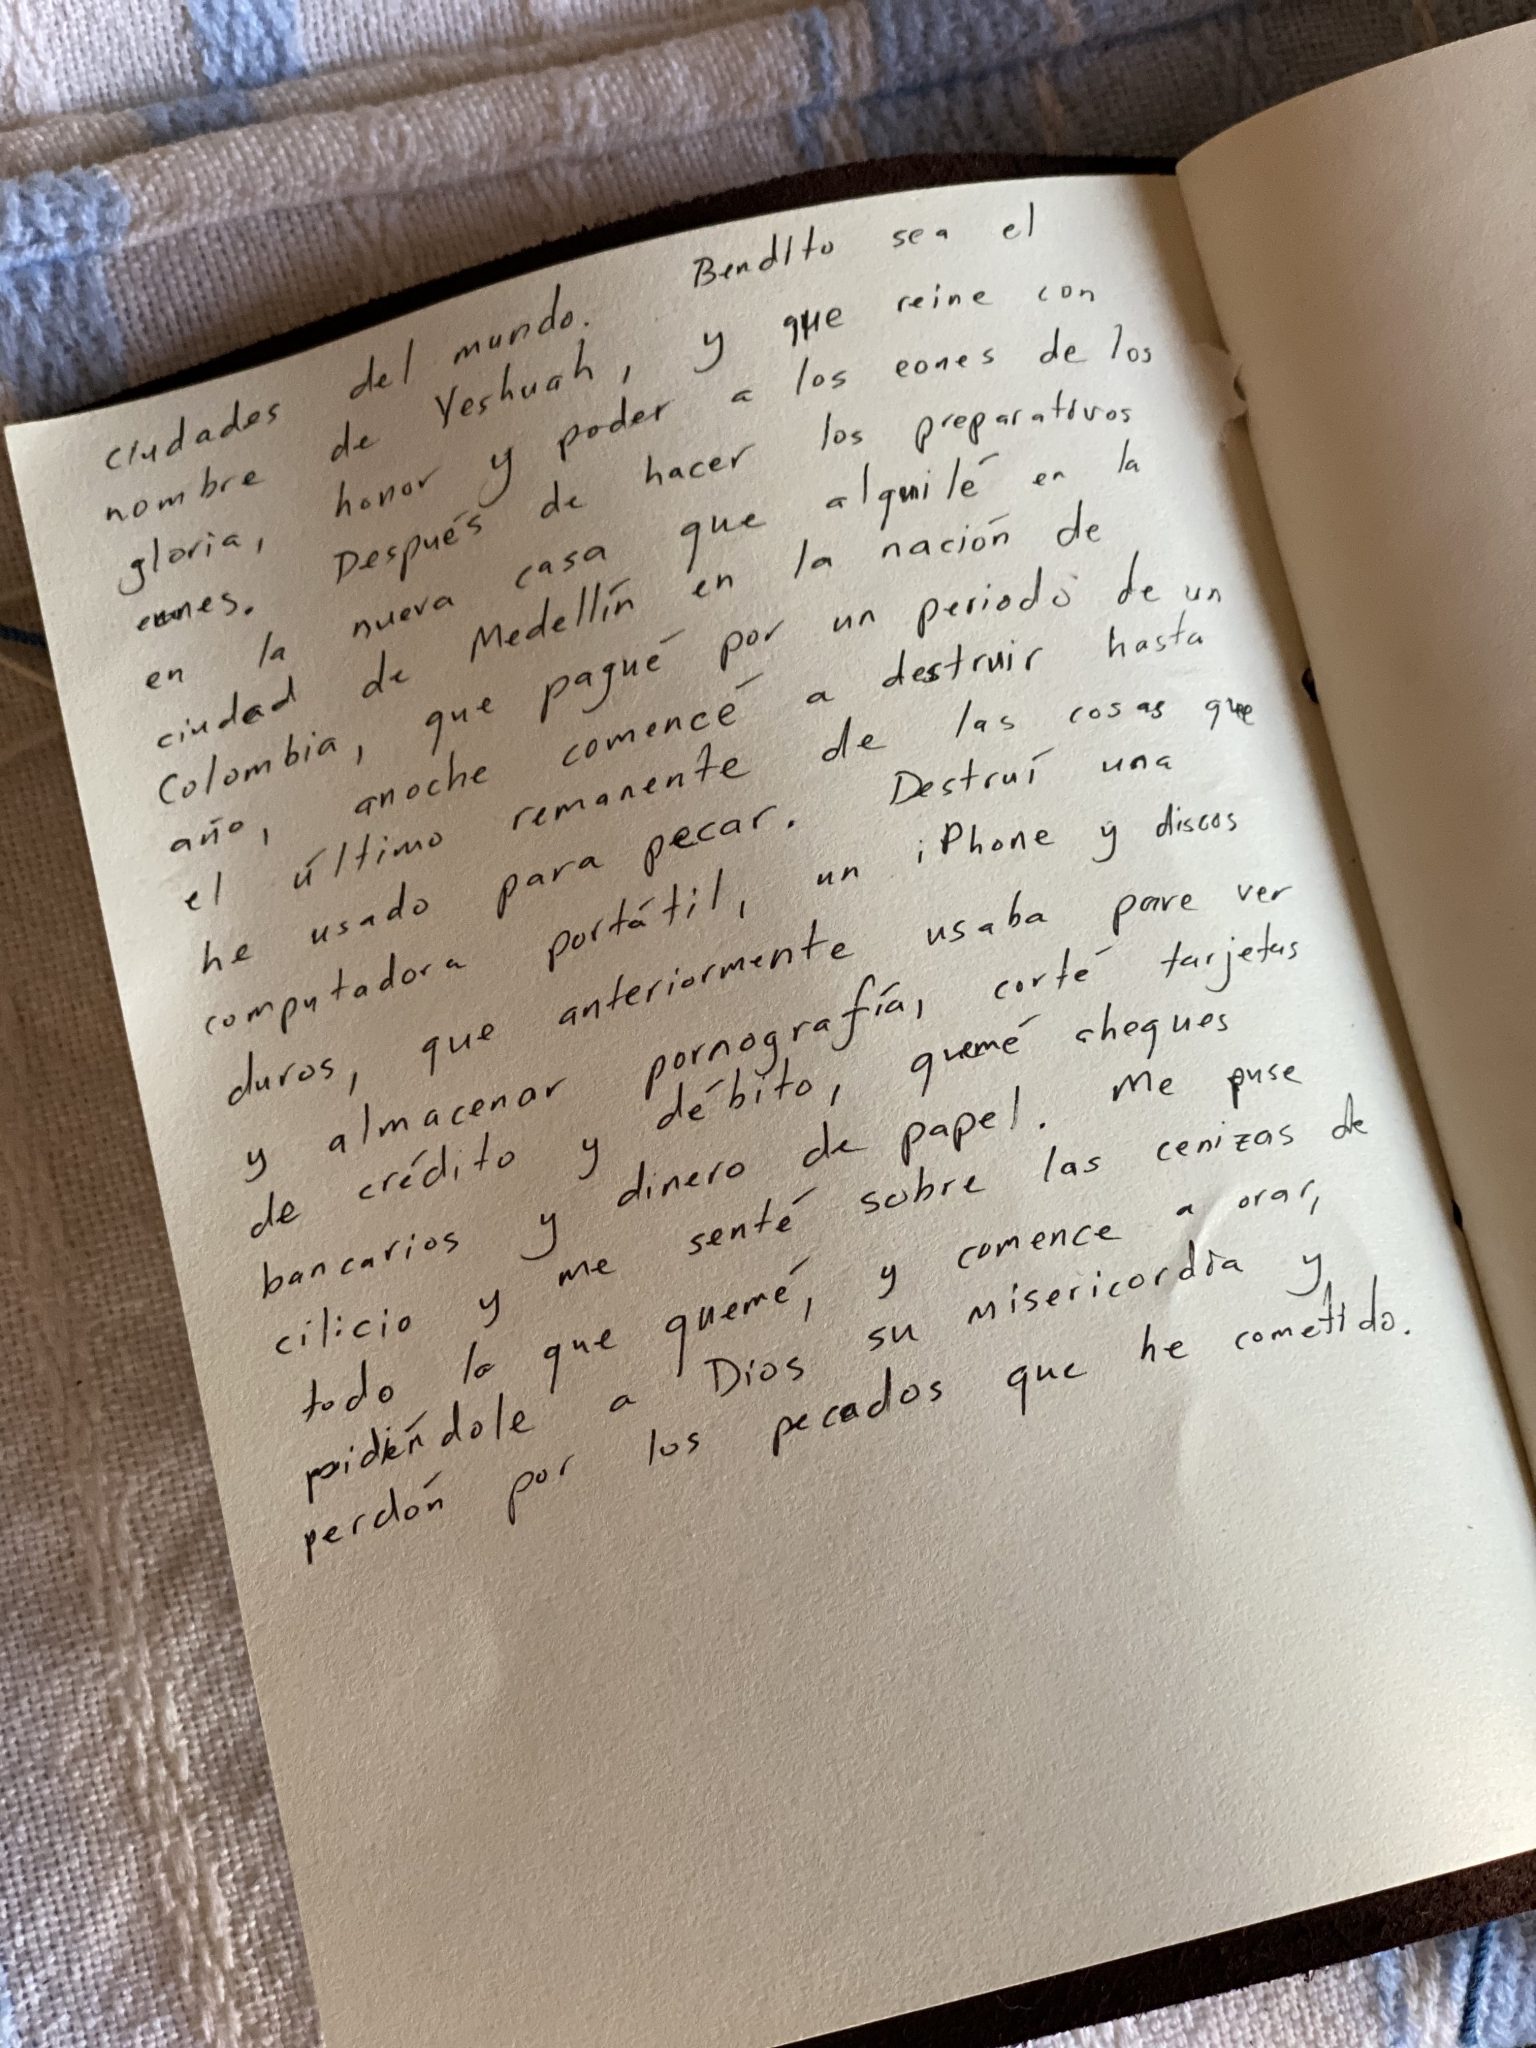 ciudades del mundo. Bendito sea el
nombre de Yeshuah, y que reine con
gloria, honor y poder a los eones de los
eones. Después de hacer los preparativos
en la nueva casa que alquilé en la
ciudad de Medellín en la nación de
Colombia, que pagué por un periodo de un
año, anoche comencé a destruir hasta
el último remanente de las cosas que
he usado para pecar. Destruí una
computadora portátil, un iPhone y discos
duros, que anteriormente usaba para ver
y almacenar pornografía, corté tarjetas
de crédito y débito, quemé cheques
bancarios y dinero de papel. Me puse
cilicio y me senté sobre las cenizas de
todo lo que quemé, y comence a orar,
pidiéndole a Dios su misericordia y
perdón por los pecados que he cometido.